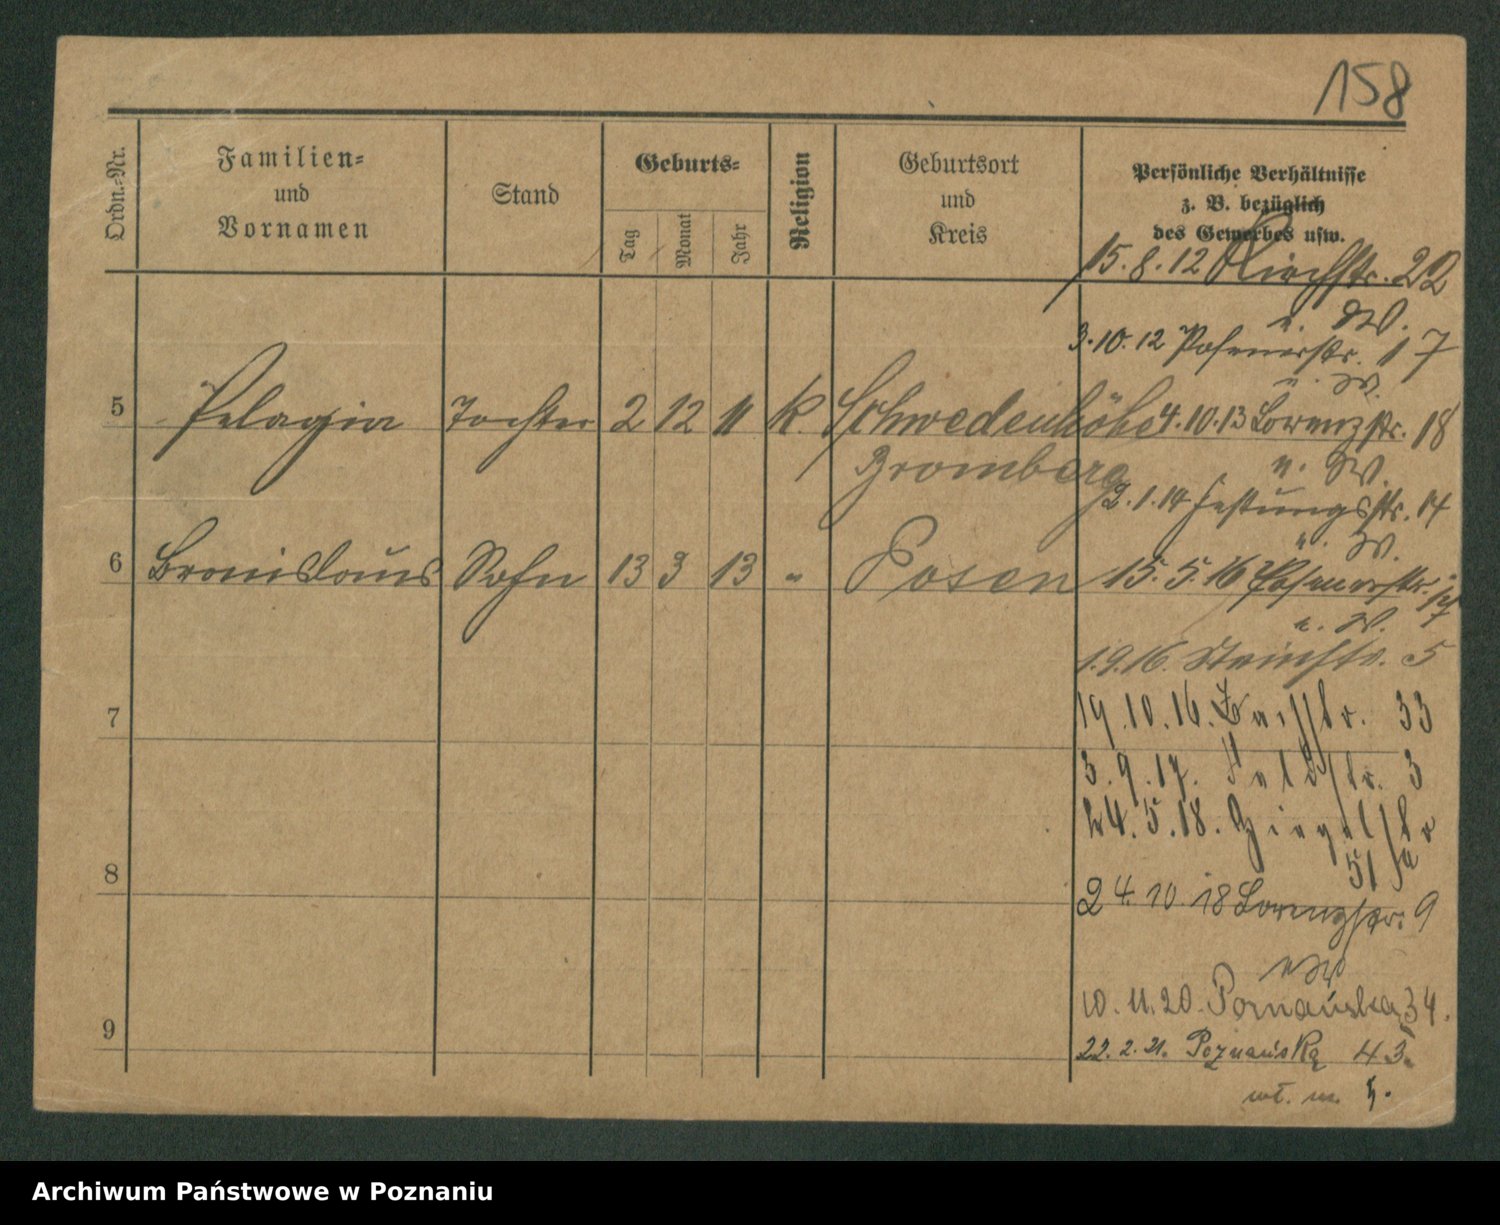 158
Ordn.-Nr.
Familien-
und
Vornamen
Stand
Geburts-
Tag
Monat
Jahr
Religion
Geburtsort
und
Kreis
Persönliche Verhältnisse
z. B. bezüglich
des Gewerbes usw.
15.8.12 Kirchstr. 22
u. W.
3.10.12 Posenerstr. 17
u. W.
5 Pelagia Tochter 2 12 11 k. Schwedenhöhe 4.10.13 Lorenzstr. 18
Bromberg
u. W.
2.1.14 Festungsstr. 14
u. W.
6 Bronislaus Sohn 13 3 13 " Posen 15.5.16 Posenerstr. 17
u. W.
1.9.16. Steinstr. 5
7 19.10.16. 33
3.9.17. Feldstr. 3
24.5.18. Ziegelstr
51
8
24.10.18 Lorenzstr. 9
10.11.20. Poznańska 34.
9 22.2.21. Poznańska 43.
wł. m. 5.
Archiwum Państwowe w Poznaniu